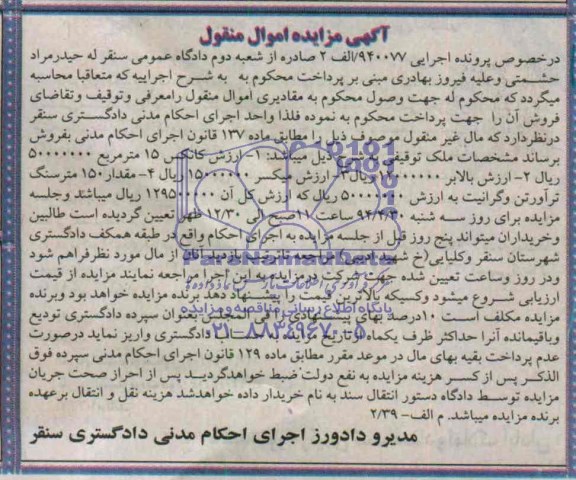 آگهی مزایده اموال منقول
درخصوص پرونده اجرایی ۹۴۰۰۷۷/الف ۲ صادره از شعبه دوم دادگاه عمومی سنقر له حیدرمراد
حشمتی وعلیه فیروز بهادری مبنی بر پرداخت محکوم به به شرح اجراییه که متعاقبا محاسبه
میگردد که محکوم له جهت وصول محکوم به مقادیری اموال منقول رامعرفی وتوقیف وتقاضای
فروش آن را جهت پرداخت محکوم به نموده فلذا واحد اجرای احکام مدنی دادگستری سنقر
درنظردارد که مال غیر منقول موصوف ذیل را مطابق ماده ۱۳۷ قانون اجرای احکام مدنی بفروش
برساند مشخصات ملک توقیفی ذیل میباشد: ۱- ارزش کانکس ۱۵ مترمربع ۵۰۰۰۰۰۰۰
ریال ۲- ارزش بالابر ریال ۳- ارزش میکسر ۱۵۰۰۰۰۰۰ ریال ۴- مقدار ۱۵۰ مترسنگ
تراورتن وگرانیت به ارزش ریال که ارزش کل آن ۱۲۹۵۰۰۰۰۰ ریال میباشند وجلسه
مزایده برای روز سه شنبه ۹۴/۴/۳۰ ساعت ۱۱صبح الی ۱۲/۳۰ ظهر تعیین گردیده است طالبین
وخریداران میتواند پنج روز قبل از جلسه مزایده به اجرای احکام واقع در طبقه همکف دادگستری
شهرستان سنقر وکلیایی(خ شهید ادیبی) مراجعه تا ترتیب بازدید آنان از مال مورد نظرفراهم شود
ودر روز وساعت تعیین شده جهت شرکت درمزایده به این اجرا مراجعه نمایند مزایده از قیمت
ارزیابی شروع میشود وکسیکه بالاترین قیمت را پیشنهاد دهد برنده مزایده خواهد بود وبرنده
مزایده مکلف است ۱۰درصد بهای پیشنهادی را فی المجلس بعنوان سپرده دادگستری تودیع
وباقیمانده آنرا حداکثر ظرف یکماه ازتاریخ مزایده به حساب دادگستری واریز نماید درصورت
عدم پرداخت بقیه بهای مال در موعد مقرر مطابق ماده ۱۲۹ قانون اجرای احکام مدنی سپرده فوق
الذکر پس از کسر هزینه مزایده به نفع دولت ضبط خواهدگردید. پس از احراز صحت جریان
مزایده توسط دادگاه دستور انتقال سند به نام خریدار داده خواهدشد هزینه نقل و انتقال برعهده
برنده مزایده میباشد. م الف- ۲/۳۹
مدیرو دادورز اجرای احکام مدنی دادگستری سنقر
پایگاه اطلاع رسانی مناقصه ومزایده
۰۲۱-۸۸۳۴۹۶۷۰-۵